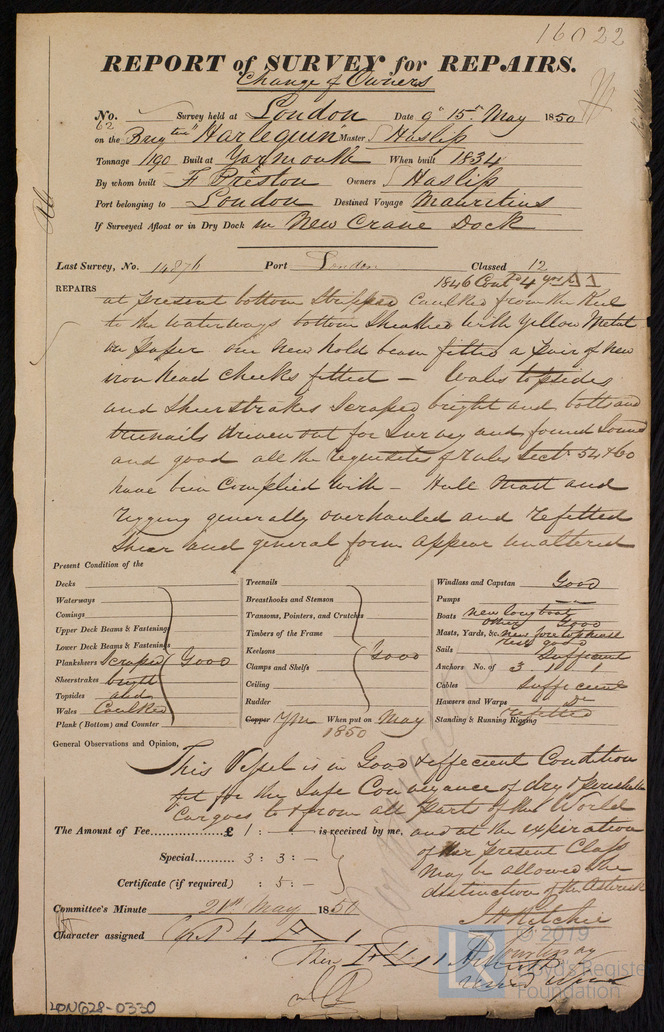 16022
REPORT of SURVEY for REPAIRS.
Change of Owners
No. Survey held at London Date 9 15 May 1850
62 on the Brigtn "Harlequin" Master J Haslip
Tonnage 190 Built at Yarmouth When built 1834
By whom built F Preston Owners J Haslip
Port belonging to London Destined Voyage Mauritius
If Surveyed Afloat or in Dry Dock in New Crane Dock
Last Survey, No. 14876 Port London Classed 12
1846 Contd 4 yrs A 1
REPAIRS
at present bottom Stripped Caulked from the Keel
to the waterways bottom Sheathed with Yellow Metal
on paper one new hold beam fitted a pair of new
iron head cheeks fitted – Wales topsides
and Sheerstrakes Scraped bright and bolts and
treenails driven out for Survey and found Sound
and good all the requisite of rules Sect 54 & 60
have been Complied with – Hull Mast and
rigging generally overhauled and refitted
Sheer and general form appear unaltered
Present Condition of the
Decks
Waterways
Comings
Upper Deck Beams & Fastenings
Lower Deck Beams & Fastenings
Planksheers Scraped Good
Sheerstrakes bright
Topsides and
Wales Caulked
Plank (Bottom) and Counter
Treenails
Breasthooks and Stemson
Transons, Pointers, and Crutches
Timbers of the Frame
Keelsons Good
Clamps and Shelfs
Ceiling
Rudder
Copper YM When put on May
1850
Windlass and Capstan Good
Pumps
Boats new long boat
other Good
Masts, Yards, &c. new fore topmast
rest good
Sails Sufficient
Anchors No. of 3 1 1
Cables Sufficient
Hawsers and Warps Do
Standing & Running Rigging refitted
General Observations and Opinion,
This Vessel is in Good & effecient Condition
fit for the Safe Conveyance of dry & perishable
Cargoes to & from all parts of the World
The Amount of Fee......... £ 1 : – : – is received by me, and at the expiration
of her present Class
Special......... 3 : 3 : –
May be allowed the
Certificate (if required) : 5 : –
distinction of the Asterisk
Committee's Minute 21st May 1850
J H Ritchie
Character assigned
LON628-0330
LR
© 2019
Lloyd's Register
Foundation